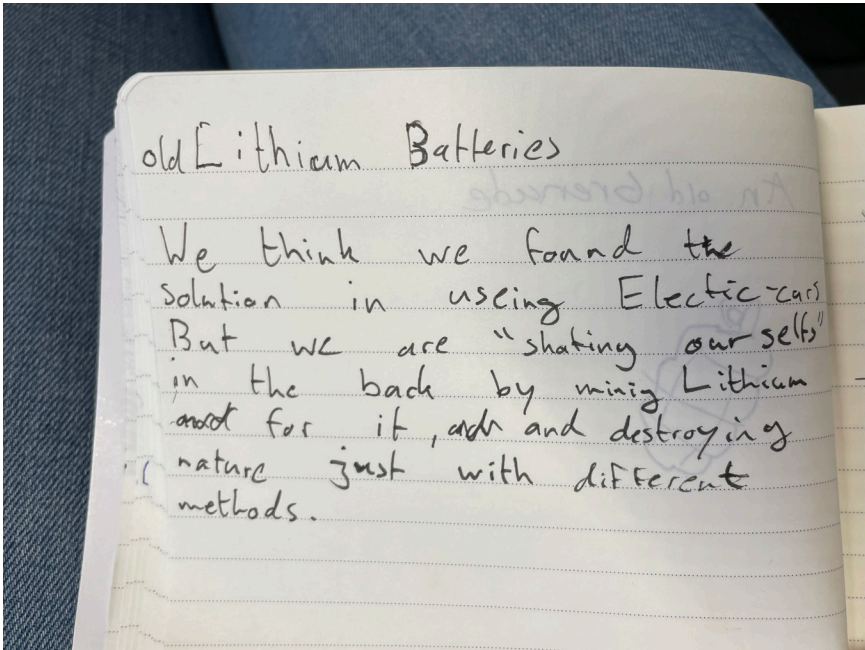 old Lithium Batteries
An old Grenade
We think we found the
solution in useing Electic-cars
But we are "shating our selfs"
in the back by minig Lithium
for it, and destroying
nature just with different
methods.